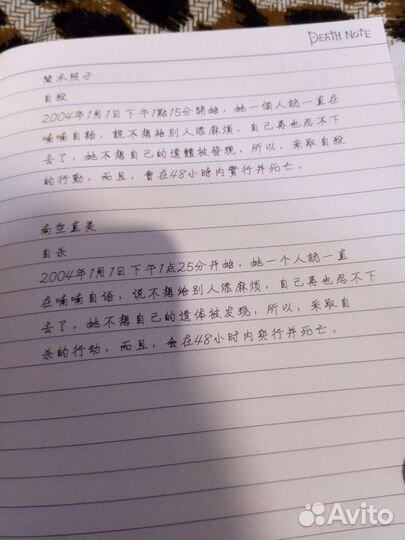 DEATH NOTE
間木照子
自殺
2004年1月1日下午1點15分開始，她一個人就一直在
喃喃自語，說不想給別人添麻煩，自己再也忍不下
去了，她不想自己的遺體被發現，所以，采取自殺
的行動，而且，會在48小時內實行并死亡。
南空直美
自杀
2004年1月1日下午1点25分开始，她一个人就一直
在喃喃自语，说不想给别人添麻烦，自己再也忍不下
去了，她不想自己的遗体被发现，所以，采取自
杀的行动，而且，会在48小时内实行并死亡。
Avito